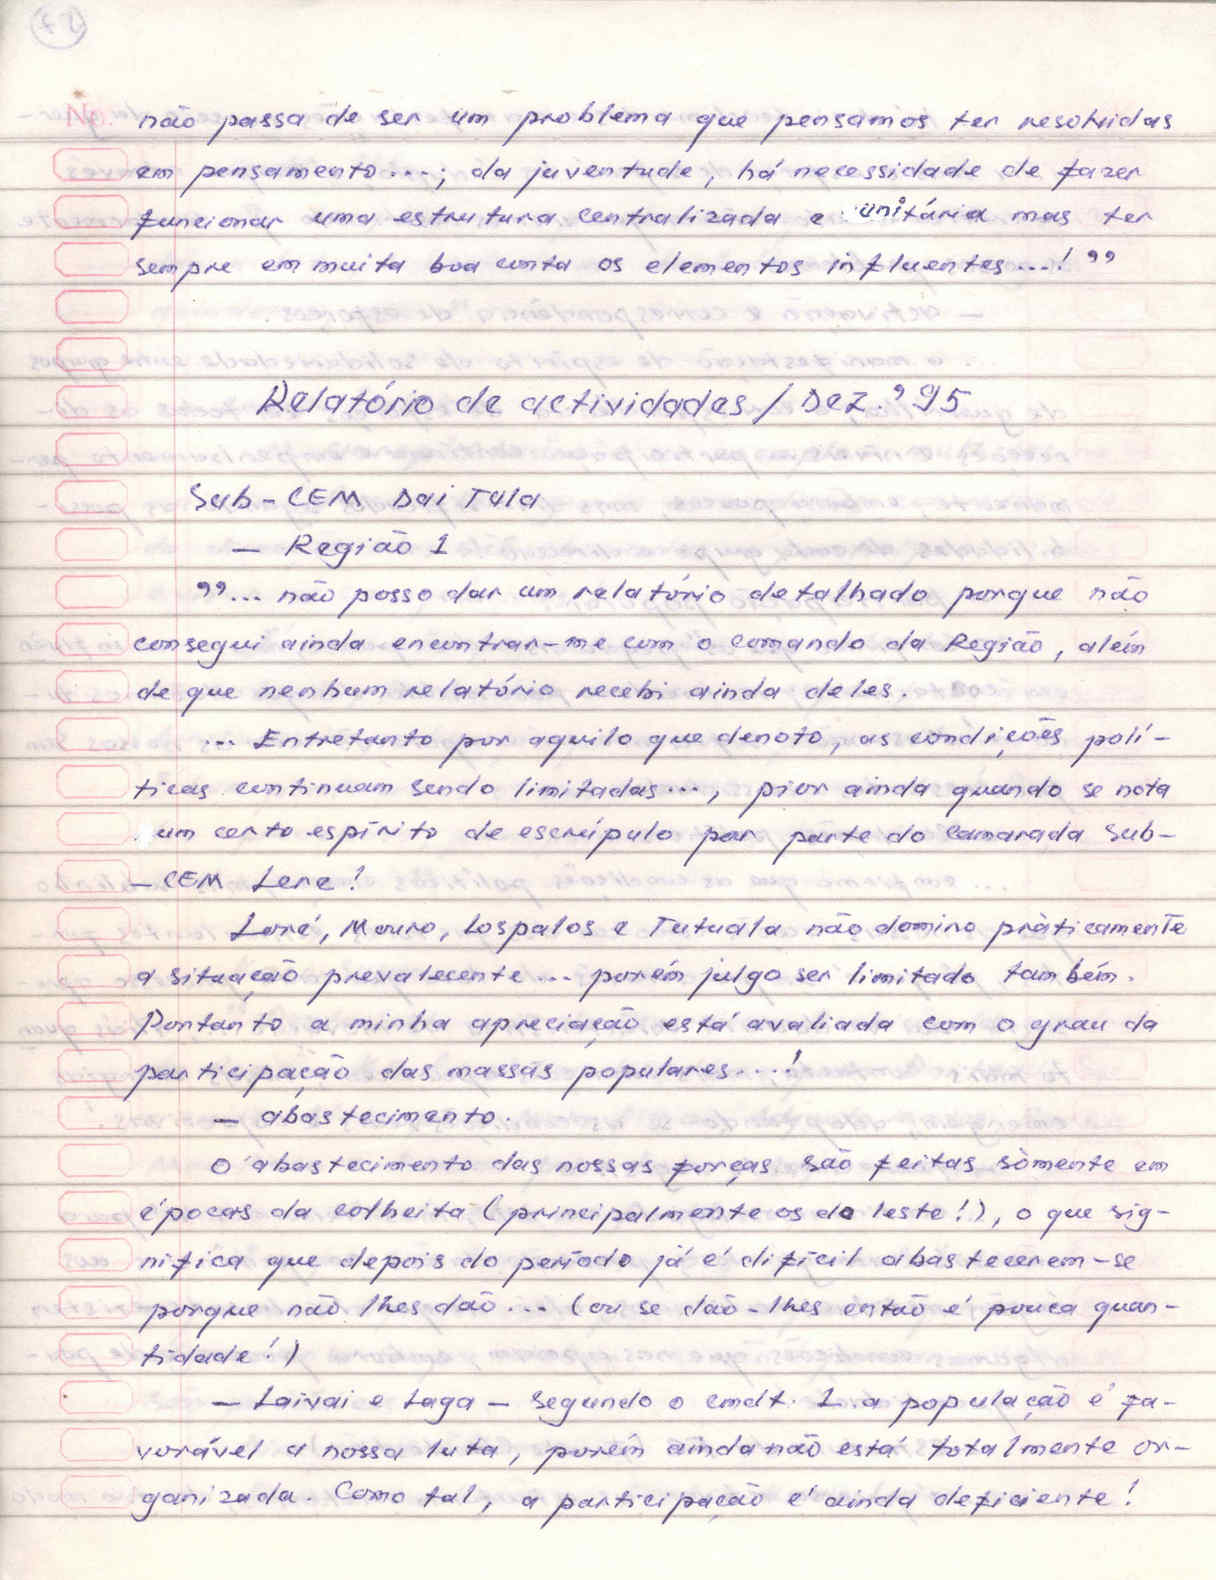 não passa de ser um problema que pensamos ter resolvidas
em pensamento...; da juventude, há necessidade de fazer
funcionar uma estrutura centralizada e unitária mas ter
sempre em muita boa conta os elementos influentes...! ”
Relatório de actividades / Dez.º 95
Sub-CEM Dai Tula
— Região 1
”... não posso dar um relatório detalhado porque não
consegui ainda encontrar-me com o comando da Região, além
de que nenhum relatório recebi ainda deles.
... Entretanto por aquilo que denoto, as condições polí-
ticas continuam sendo limitadas..., pior ainda quando se nota
um certo espírito de escrúpulo por parte do camarada Sub-
-CEM Lere!
Loré, Mouro, Lospalos e Tutuala não domino pràticamente
a situação prevalecente... porém julgo ser limitado também.
Portanto a minha apreciação está avaliada com o grau da
participação das massas populares...!
— abastecimento.
O abastecimento das nossas forças são feitas sòmente em
épocas da colheita (principalmente os do leste!), o que sig-
nifica que depois do período já é difícil abastecerem-se
porque não lhes dão... (ou se dão-lhes então é pouca quan-
tidade!)
— Laivai e Laga — segundo o cmdt. L. a população é fa-
vorável a nossa luta, porém ainda não está totalmente or-
ganizada. Como tal, a participação é ainda deficiente!